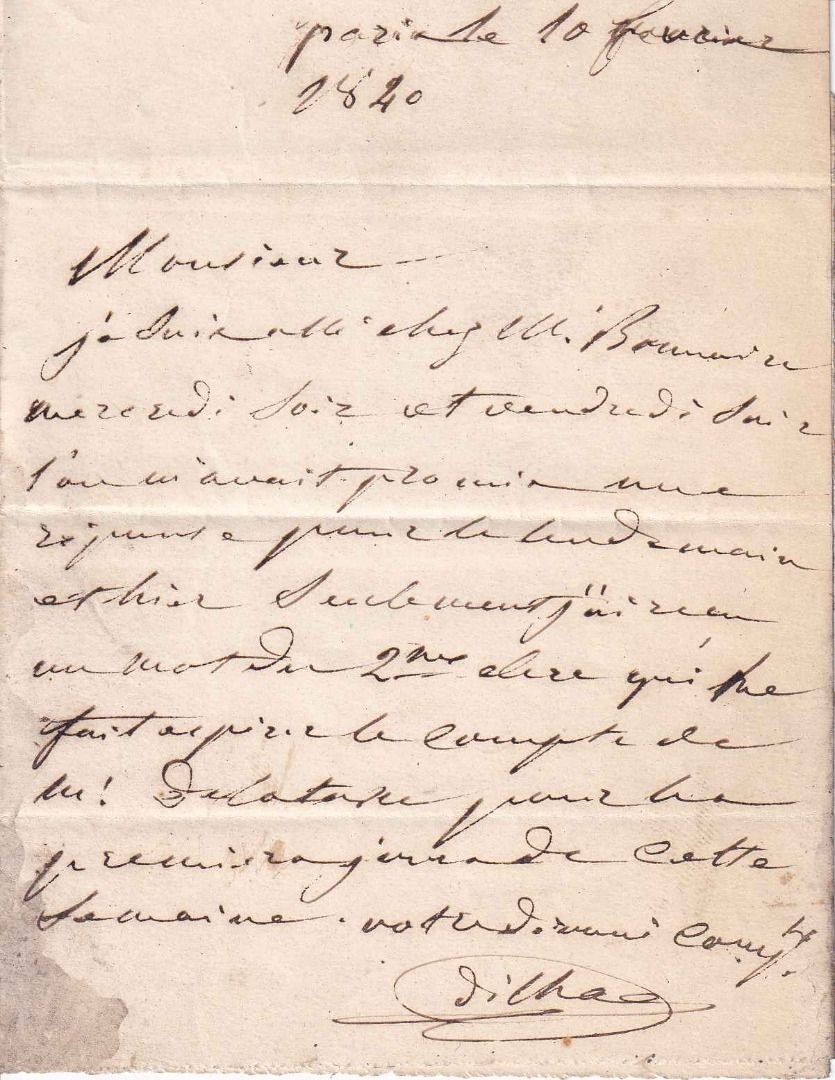 paris le 10 fevrier
1840
Monsieur
je suis allé chez M. Bonnaire
mercredi soir et vendredi soir
l'on m'avait promis une
réponse pour le lendemain
et hier seulement j'ai reçu
un mot du 2me clerc qui me
fait espérer le compte de
M. Delatasse pour les
premiers jours de cette
semaine. votre dévoué
Dilhac